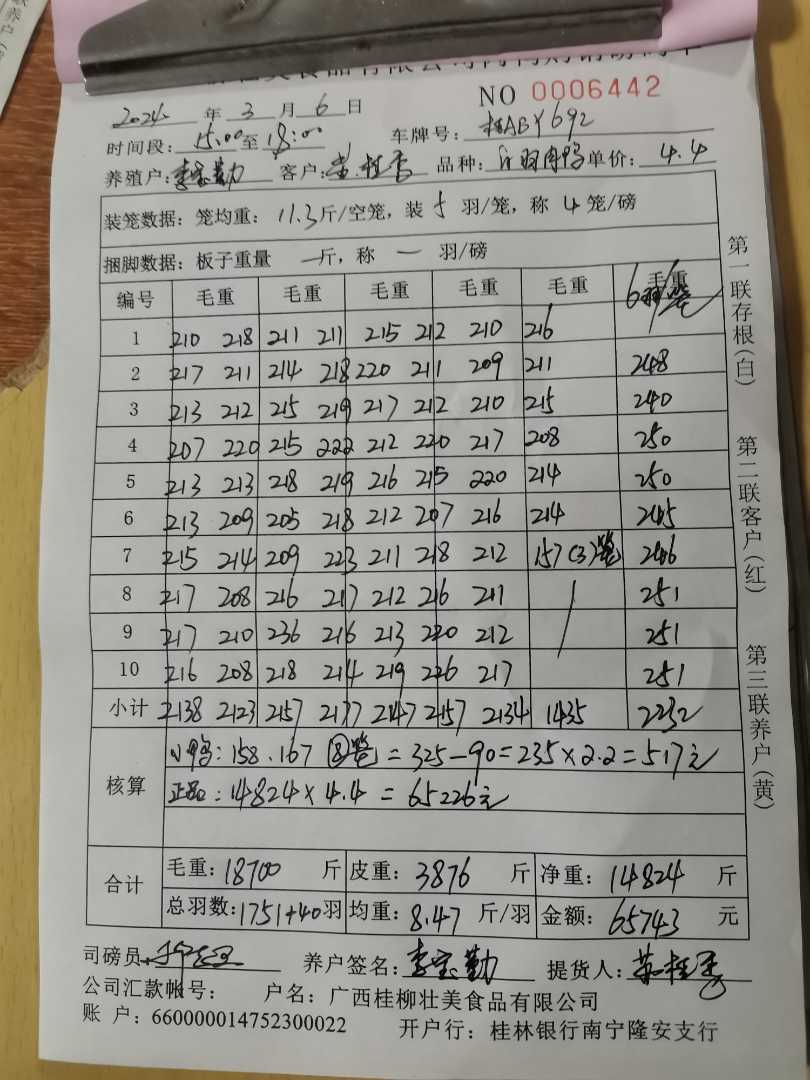 NO 0006442
2024 年 3 月 6 日
时间段: 15:00 至 18:00 车牌号: 桂ABY692
养殖户: 李宝勤 客户: 品种: 白羽肉鸭 单价: 4.4
装笼数据: 笼均重: 11.3 斤/空笼, 装 5 羽/笼, 称 4 笼/磅
捆脚数据: 板子重量 一 斤, 称 一 羽/磅
编号 毛重 毛重 毛重 毛重 毛重 毛重
1 210 218 211 211 215 212 210 216
2 217 211 214 218 220 211 209 211 248
3 213 212 215 219 217 212 210 215 240
4 207 220 215 222 212 220 217 208 250
5 213 213 218 219 216 215 220 214 250
6 213 209 205 218 212 207 216 214 245
7 215 214 209 223 211 218 212 157(3)笼 246
8 217 208 216 217 212 216 211 251
9 217 210 236 216 213 220 212 251
10 216 208 218 214 219 226 217 251
小计 2138 2123 2157 2177 2147 2157 2134 1435 2232
核算
小鸭: 158.167 ⑧笼 = 325-90=235×2.2=517元
正品: 14824×4.4 = 65226元
合计
毛重: 18700 斤 皮重: 3876 斤 净重: 14824 斤
总羽数: 1751+40 羽 均重: 8.47 斤/羽 金额: 65743 元
司磅员 养户签名: 李宝勤 提货人:
公司汇款帐号: 户名: 广西桂柳壮美食品有限公司
账 户: 660000014752300022 开户行: 桂林银行南宁隆安支行
第一联存根(白)
第二联客户(红)
第三联养户(黄)